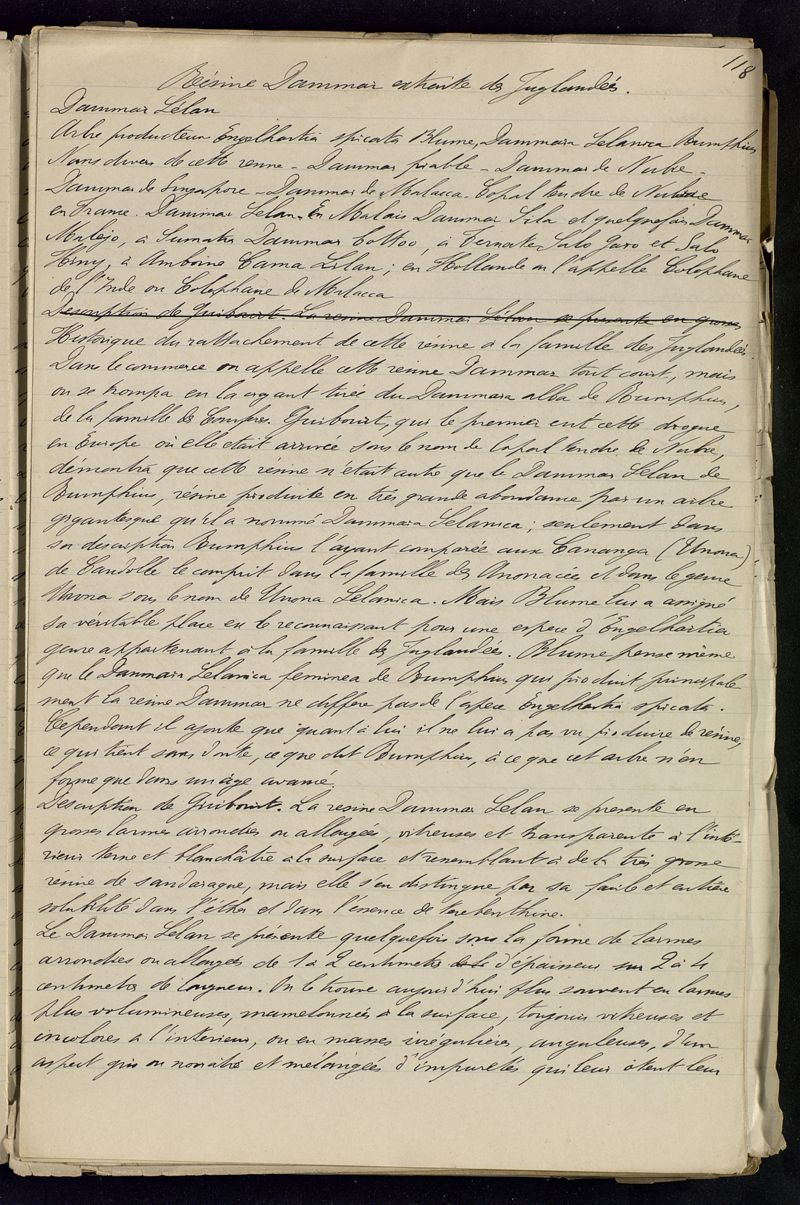 118
Résine Dammar extraite des Juglandées.
Dammar Sélan
Arbre producteur Engelhartia spicata Blume, Dammara Selanica Rumphius
Noms divers de cette resine - Dammar friable - Dammar de Nubie -
Dammar de Singapore - Dammar de Malacca - Copal tendre de Nubie
en France. Dammar Selan. En Malais Dammar Sila et quelquefois Dammar
Matejo, à Sumatra Dammar Cottoo, à Ternate Salo Goro et Salo
Hiny, à Amboine Cama Lilan; en Hollande on l'appelle Colophane
de l'Inde ou Colophane de Malacca
Description de Guibourt. La resine Dammar Sélan se presente en grosses
Historique du rattachement de cette resine à la famille des Juglandées.
Dans le commerce on appelle cette resine Dammar tout court, mais
on se trompa en la croyant tirée du Dammara alba de Rumphius,
de la famille des Conifres. Guibourt, qui le premier eut cette drogue
en Europe où elle était arrivée sous le nom de Copal tendre de Nubie,
démontra que cette resine n'était autre que le Dammar Selan de
Rumphius, résine produite en très grande abondance par un arbre
gigantesque qu'il a nommé Dammara Selanica; seulement dans
sa description Rumphius l'ayant comparée aux Cananga (Unona)
de Candolle le comprit dans la famille des Anonacées et dans le genre
Unona sous le nom de Unona Selanica. Mais Blume lui a assigné
sa véritable place en le reconnaissant pour une espece d'Engelhartia
genre appartenant à la famille des Juglandées. Blume pense même
que le Dammara Selanica feminea de Rumphius qui produit principale
ment la resine Dammar ne differe pas de l'espece Engelhartia spicata.
Cependant il ajoute que quant à lui il ne lui a pas vu produire de résine,
ce qui tient sans doute, ce que dit Rumphius, à ce que cet arbre n'en
forme que dans un âge avancé
Description de Guibourt. La resine Dammar Selan se presente en
grosses larmes arrondies ou allongées, vitreuses et transparente à l'inté-
rieur terne et blanchâtre à la surface et ressemblant à de la très grosse
résine de sandaraque, mais elle s'en distingue par sa facile et entière
solubilité dans l'éther et dans l'essence de terebenthine.
Le Dammar Selan se présente quelquefois sous la forme de larmes
arrondies ou allongées de 1 à 2 centimetres d'épaisseur sur 2 à 4
centimetres de longueur. On le trouve aujourd'hui plus souvent en larmes
plus volumineuses, mamelonnées à la surface, toujours vitreuses et
incolores à l'interieur, ou en masses irrégulières, anguleuses, d'un
aspect gris ou noirâtre et mélangées d'impuretés qui leur ôtent leur